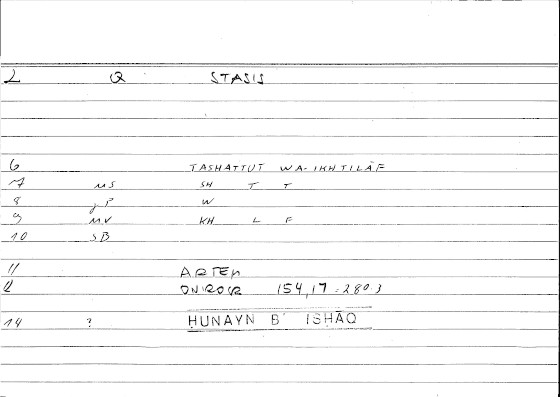 2 Q STASIS
6 TASHATTUT WA-IKHTILĀF
7 MS SH T T
8 JP W
9 MV KH L F
10 SB
11 ARTEM
12 ONROCR 154,17 = 280.3
14 ? ḤUNAYN B ISḤĀQ